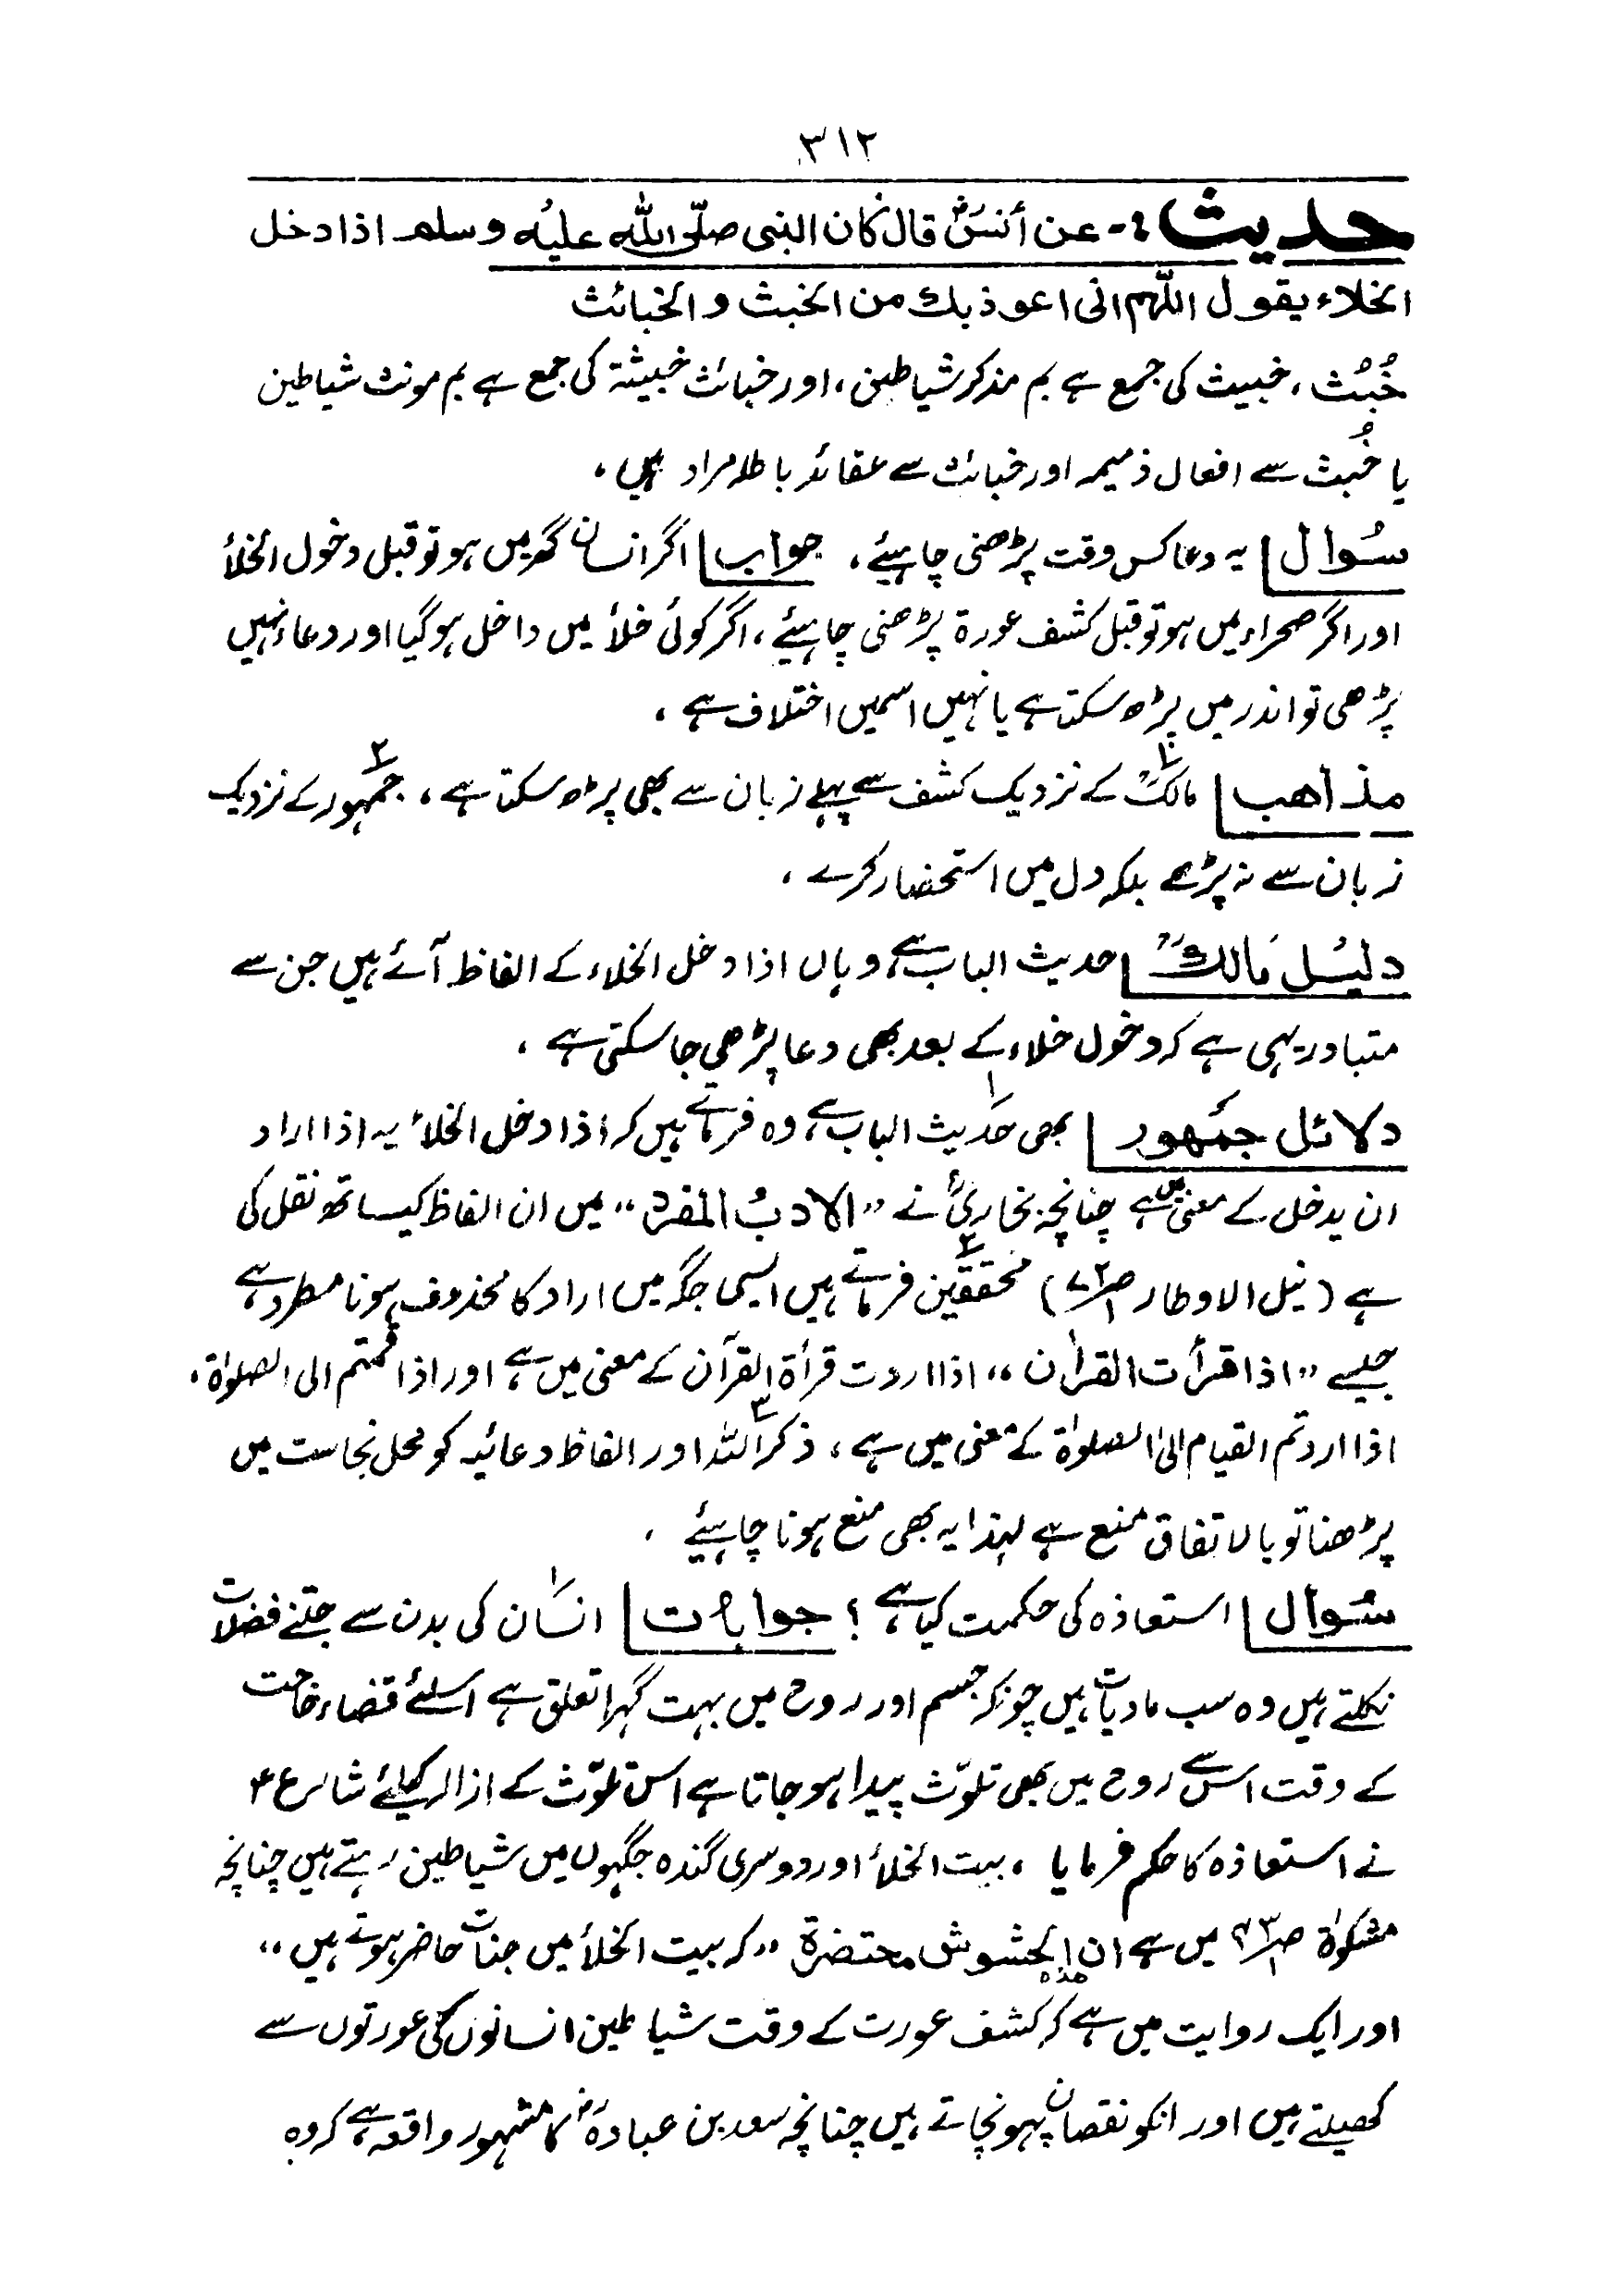 ٣١٢
حدیث :- عن أنسؓ قال کان النبی صلّی الله علیه وسلم اذا دخل
الخلاء یقول اللّٰهم انی اعوذ بك من الخبث و الخبائث
خُبُث ، خبیث کی جمع ہے بم مذکر شیاطین ، اور خبائث خبیثۃ کی جمع ہے بم مونث شیاطین
یا خُبُث سے افعال ذمیمہ اور خبائث سے عقائد باطلہ مراد ہیں ،
سُوال یہ دعا کس وقت پڑھنی چاہیئے ، جواب اگر انسان گھر میں ہو تو قبل دخول الخلأ
اور اگر صحراء میں ہو تو قبل کشف عورۃ پڑھنی چاہیئے ، اگر کوئی خلأ میں داخل ہو گیا اور دعاء نہیں
پڑھی تو اندر میں پڑھ سکتا ہے یا نہیں اسمیں اختلاف ہے ،
مذاهب ١ مالکؒ کے نزدیک کشف سے پہلے زبان سے بھی پڑھ سکتا ہے ، ٢ جمہور کے نزدیک
زبان سے نہ پڑھے بلکہ دل میں استحضار کرے ،
دلیل مالکؒ حدیث الباب ہے، وہاں اذا دخل الخلاء کے الفاظ آئے ہیں جن سے
متبادر یہی ہے کہ دخول خلاء کے بعد بھی دعا پڑھی جا سکتی ہے ،
دلائل جمهور ١ بھی حدیث الباب ہے، وہ فرماتے ہیں کہ اذا دخل الخلاء یہ اذا اراد
ان یدخل کے معنیٰ میں ہے چنانچہ بخاریؒ نے ”الادبُ المفرد“ میں ان الفاظ کیساتھ نقل کی
ہے (نیل الاوطار ص) ٢ محققین فرماتے ہیں ایسی جگہ میں اراد کا محذوف ہونا مطرد ہے
جیسے ”اذا قرأت القراٰن“ اذا اردت قرأۃ القرآن کے معنی میں ہے اور اذا قمتم الی الصلوٰۃ ،
اذا اردتم القیام الیٰ الصلوٰۃ کے معنی میں ہے ، ٣ ذکر اللہ اور الفاظ دعائیہ کو محل نجاست میں
پڑھنا تو بالاتفاق منع ہے لہٰذا یہ بھی منع ہونا چاہیئے ،
سُوال استعاذہ کی حکمت کیا ہے ؟ جوابات ١ انسان کی بدن سے جتنے فضلات
نکلتے ہیں وہ سب مادیات ہیں چونکہ جسم اور روح میں بہت گہرا تعلق ہے اسلئے قضاء حاجت
کے وقت اس سے روح میں بھی تلوّث پیدا ہو جاتا ہے اس تلوّث کے ازالہ کیلئے شارع ؑ
نے استعاذہ کا حکم فرمایا ، بیت الخلأ اور دوسری گندہ جگہوں میں شیاطین رہتے ہیں چنانچہ
مشکوٰۃ ص میں ہے ان هذه الحشوش محتضرۃ ”کہ بیت الخلأ میں جنات حاضر ہوتے ہیں“
اور ایک روایت میں ہے کہ کشف عورت کے وقت شیاطین انسانوں کی عورتوں سے
کھیلتے ہیں اور انکو نقصان پہونچاتے ہیں چنانچہ سعد بن عبادہؓ کا مشہور واقعہ ہے کہ وہ